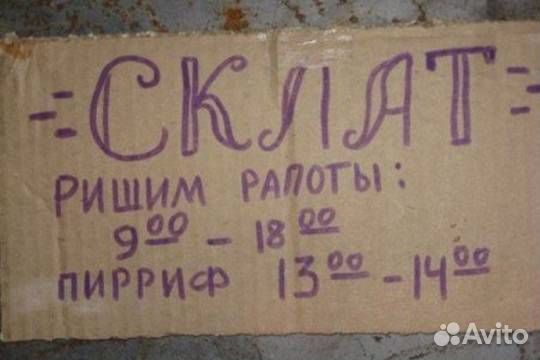 =СКЛАТ=
РИШИМ РАПОТЫ:
9⁰⁰ - 18⁰⁰
ПИРРИФ 13⁰⁰ - 14⁰⁰
Avito